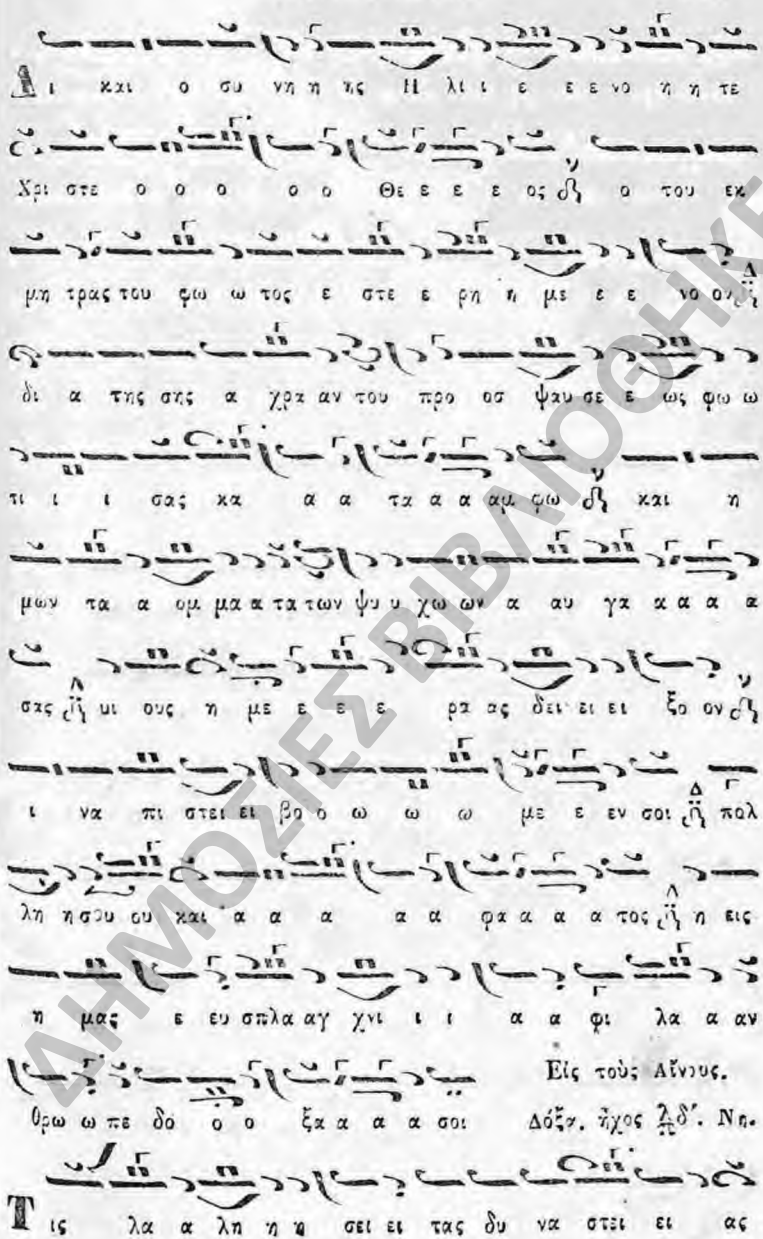 Δι και ο συ νη η ης Η λι ι ε ε ε νο η η τε
Χρι στε ο ο ο ο ο Θε ε ε ε ος ο του εκ
μη τρας του φω ω τος ε στε ε ρη η με ε ε νο ον
δι α της σης α χρα αν του προ οσ ψαυ σε ε ως φω ω
τι ι ι σας κα α α τα α α αμ φω και η
μων τα α ομ μα α τα των ψυ υ χω ων α αυ γα α α α α
σας υι ους η με ε ε ε ρα ας δει ει ει ξο ον
ι να πι στει ει βο ο ω ω ω με ε εν σοι πολ
λη η σου ου και α α α α α φα α α α τος η εις
η μας ε ευ σπλα αγ χνι ι ι α α φι λα α αν
Εἰς τοὺς Αἴνους.
θρω ω πε δο ο ο ξα α α α σοι Δόξα. ἦχος πλ δ΄. Νη.
Τις λα α λη η η σει ει τας δυ να στει ει ας
ΔΗΜΟΣΙΕΣ ΒΙΒΛΙΟΘΗΚΕ